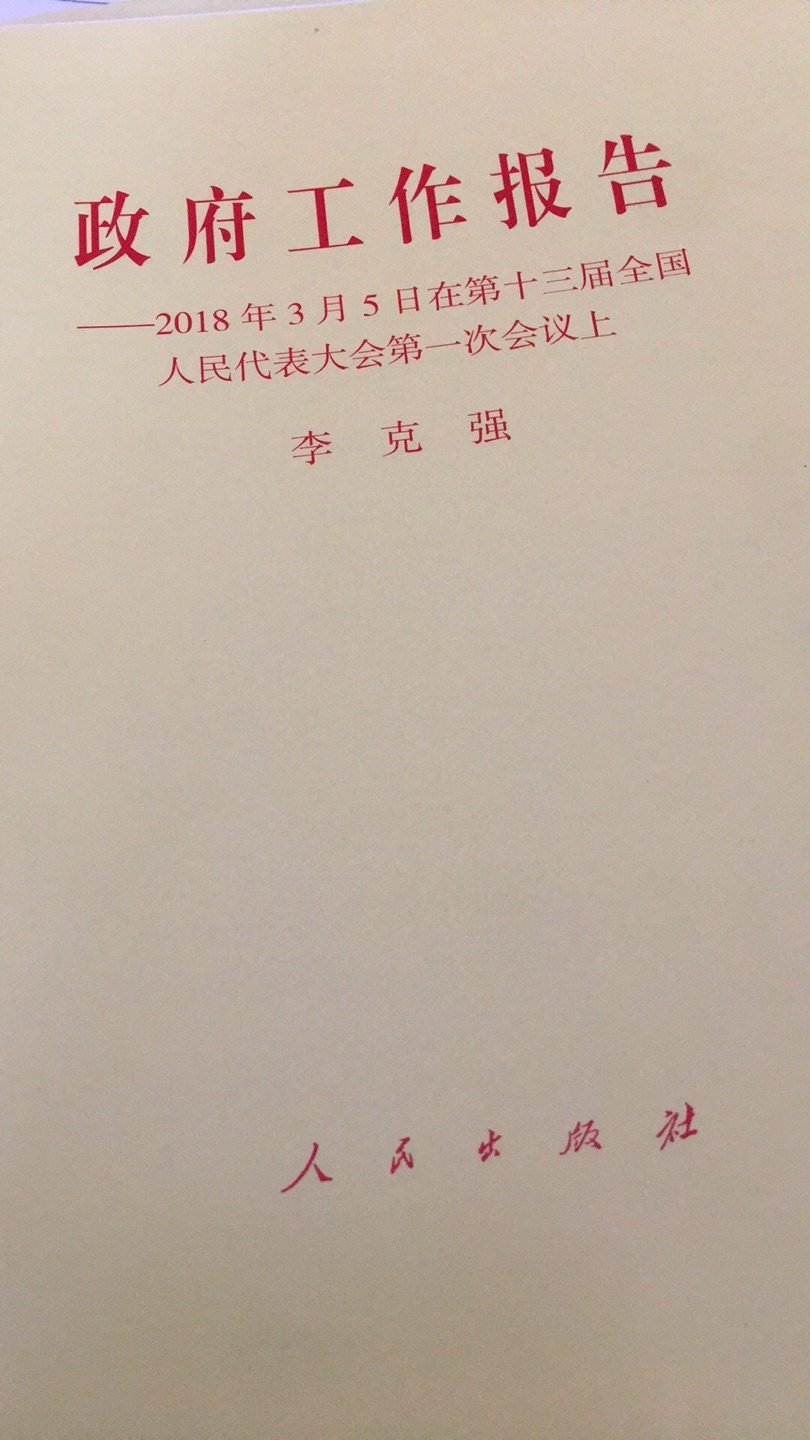 政府工作报告
——2018年3月5日在第十三届全国
人民代表大会第一次会议上
李克强
人民出版社